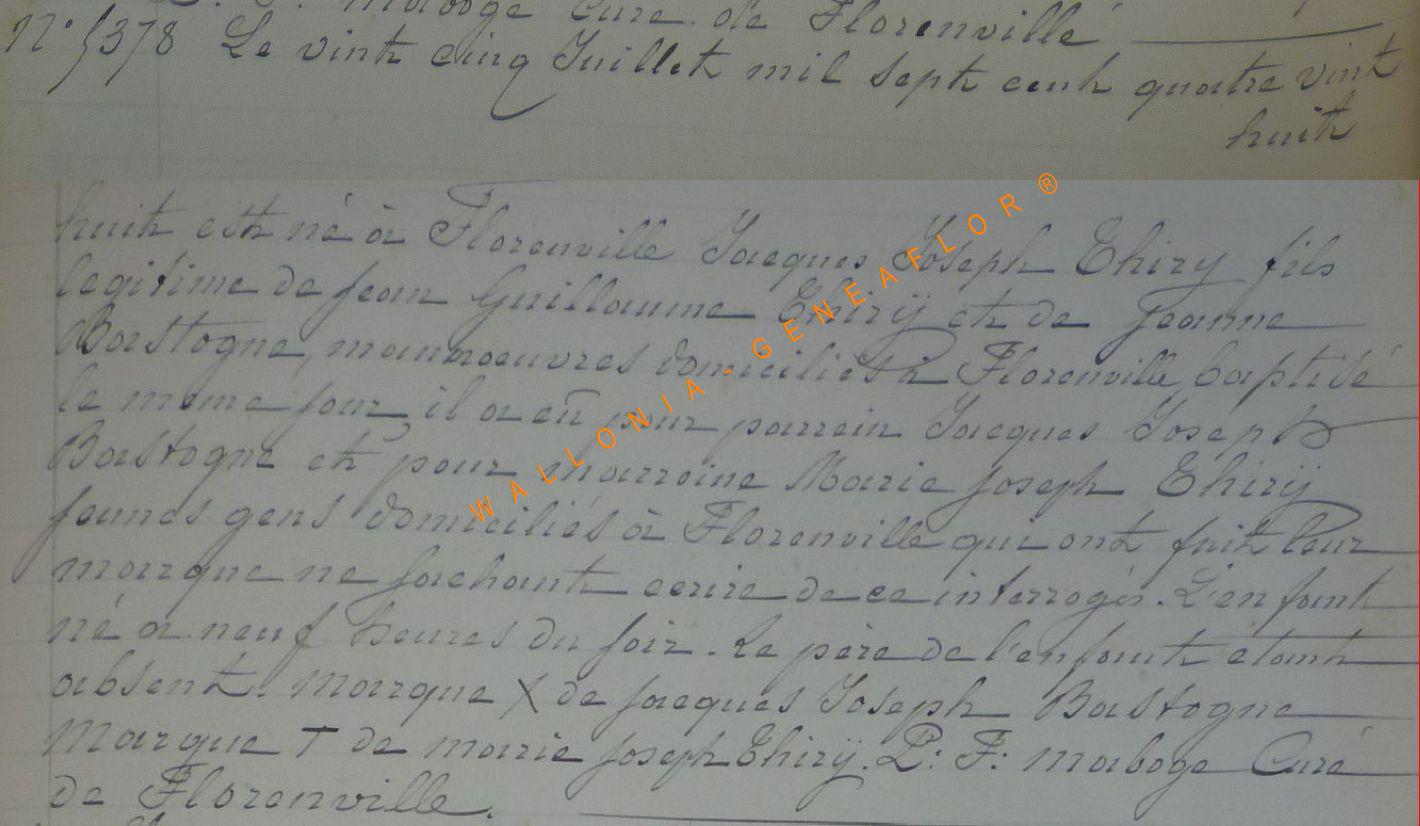 Maboge Curé de Florenville
N° 5378 Le vint cinq Juillet mil sept cent quatre vint
huit
huit est né à Florenville Jacques Joseph Thiry fils
legitime de jean Guillaume Thirÿ et de jeanne
Bastogne, manoeuvres domiciliés à Florenville baptisé
le même jour, il a eü pour parrein Jacques Joseph
Bastogne et pour marreine Marie joseph Thirÿ
jeunes gens domiciliés à Florenville qui ont fait leur
marque ne sachant ecrire de ce interrogés. L'enfant
né a neuf heures du soir. Le père de l'enfant etant
absent. Marque X de jacques Joseph Bastogne
Marque T de marie joseph Thirÿ. P: F: Maboge Curé
de Florenville.
WALLONIA - GENEAFLOR ®